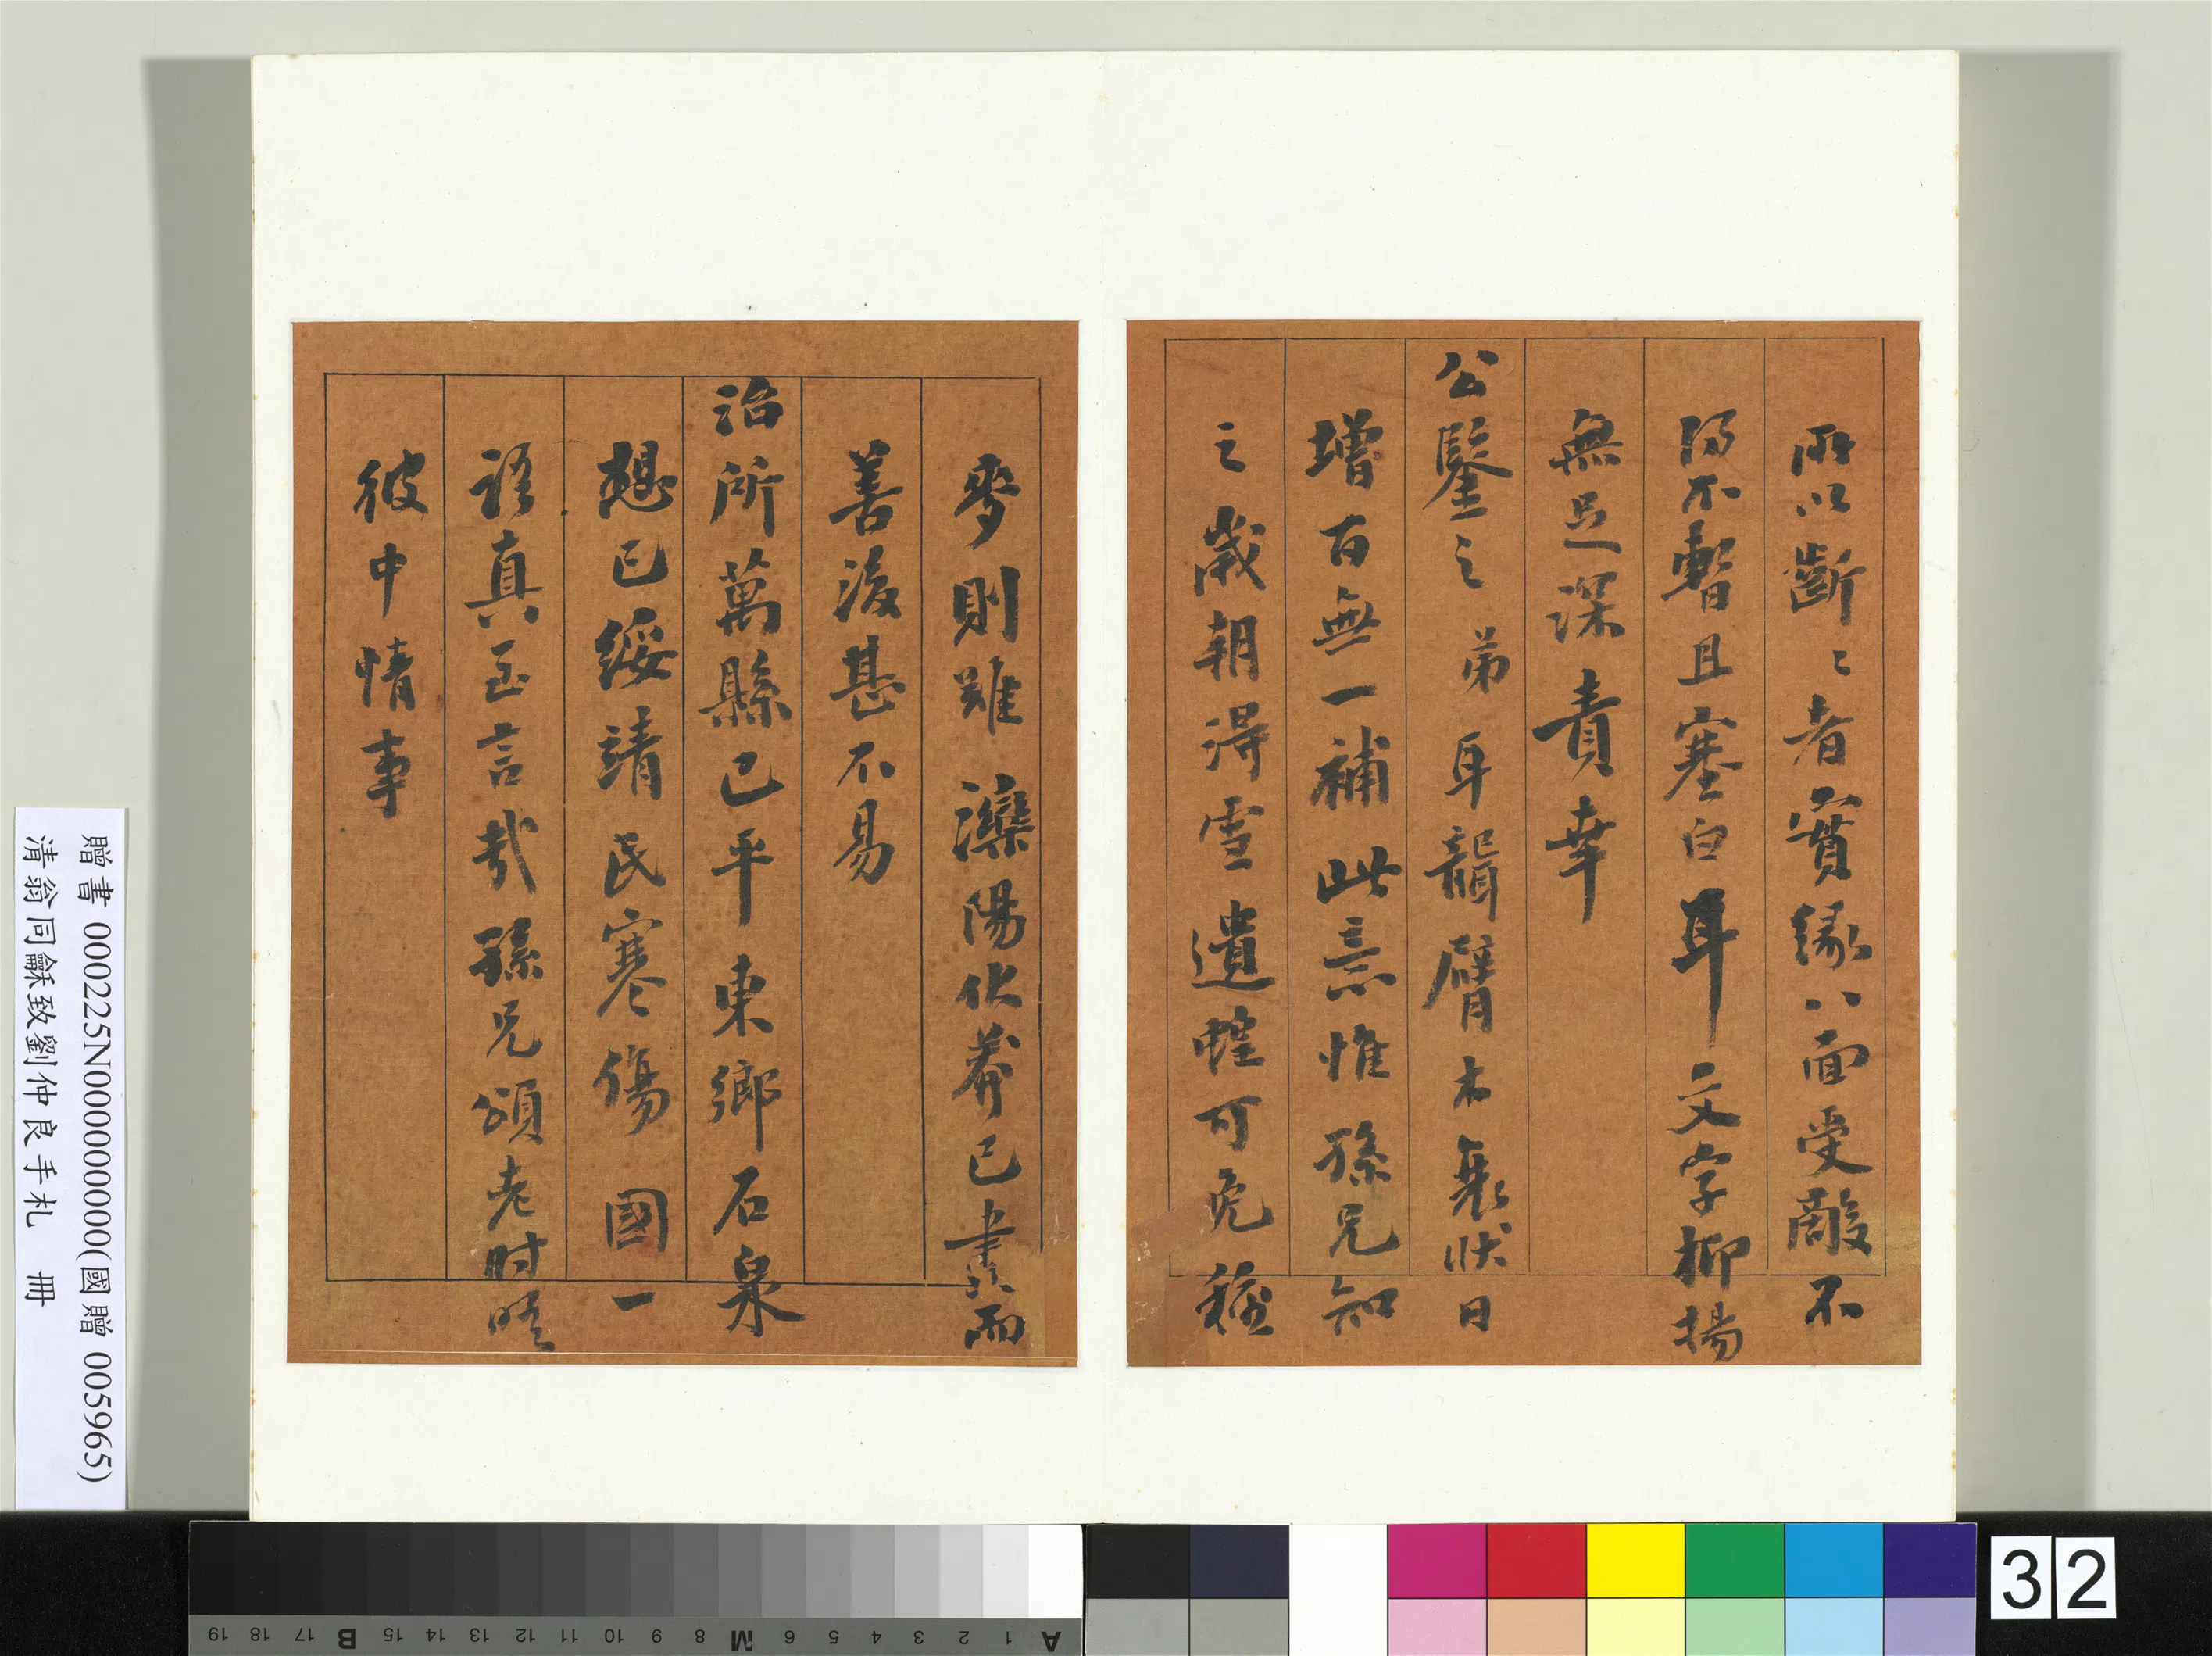 所以齗〻者實緣八面受敵不
得不暫且塞白耳文字抑揚
無足深責幸
公鑒之 弟耳聾臂木衰狀日
增百無一補此意惟孫兄知
之歲朝得雪遺蝗可免種
麥則難灤陽伏莽已盡而
善後甚不易
治所萬縣已平東鄉石泉
想已綏靖民蹇傷國一
語真至言哉孫兄頌老時晤
彼中情事
贈書 000225N000000000(國贈 005965)
清翁同龢致劉仲良手札 冊
A 1 2 3 4 5 6 M 8 9 10 11 12 13 14 15 B 17 18 19
32